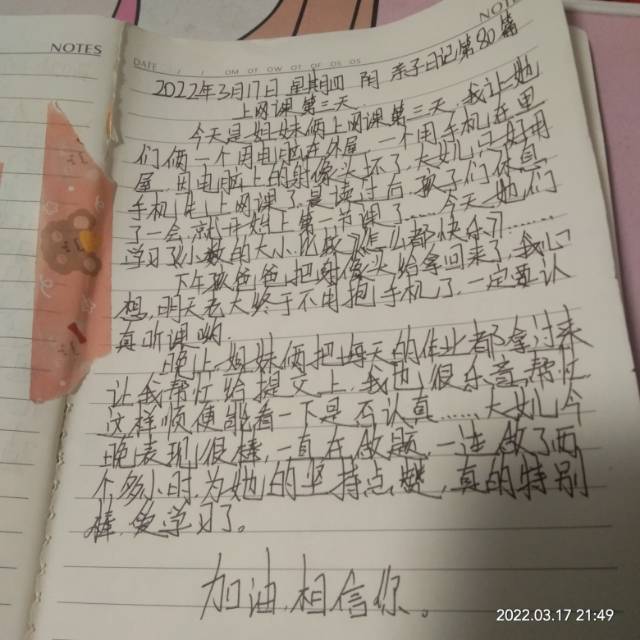 NOTES
NOTES
DATE / / OM OT OW OT OF OS OS
2022年3月17日 星期四 阴 亲子日记第80篇
上网课第三天
今天是姐妹俩上网课第三天，我让她
们俩一个用电脑在外屋，一个用手机在里
屋，用电脑上的射像头坏了，大女儿只好用
手机上网课了，晨读过后孩子们休息
了一会就开始上第一节课了……今天她们
学习了小数的大小比较，怎么都快乐习……
下午孩爸爸把射像头给拿回来了，我心
想，明天老大终于不用抱手机了，一定要认
真听课哟。
晚上，姐妹俩把每天的作业都拿过来
让我帮忙给提交上，我也很乐意帮忙
这样顺便能看一下是否认真……大女儿今
晚表现很棒，一直在做题，一连做了两
个多小时，为她的坚持点赞，真的特别
棒，爱学习了。
加油，相信你。
2022.03.17 21:49